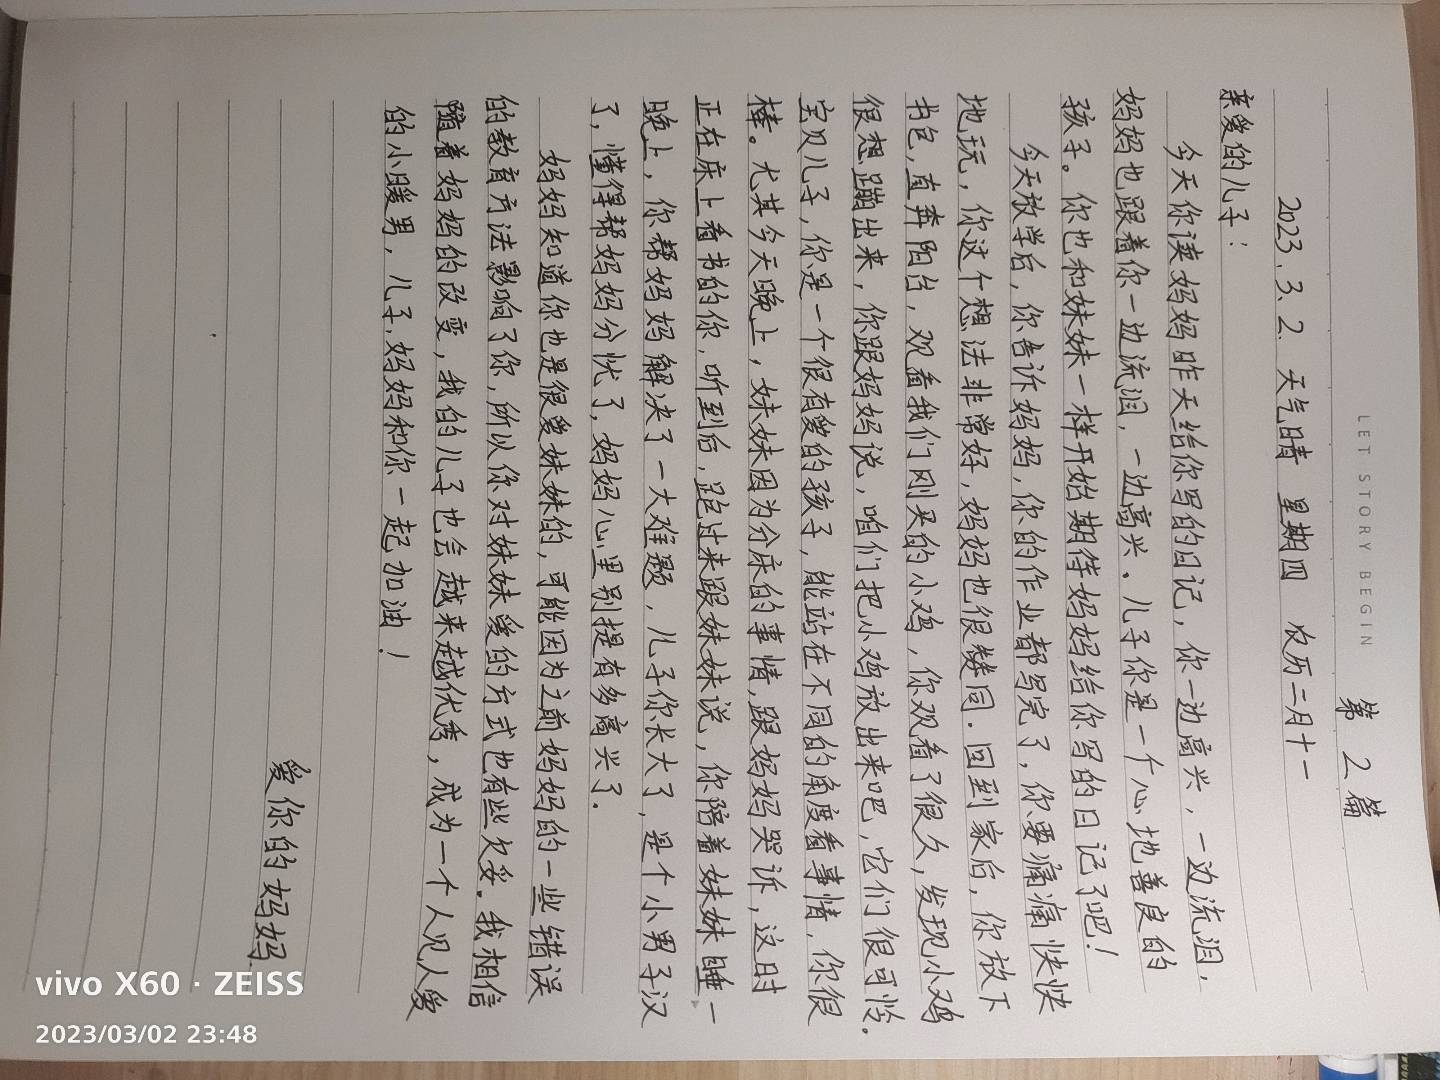 LET STORY BEGIN
第2篇
2023.3.2. 天气晴 星期四 农历二月十一
亲爱的儿子:
今天你读妈妈昨天给你写的日记,你一边高兴,一边流泪,
妈妈也跟着你一边流泪,一边高兴.儿子你是一个心地善良的
孩子。你也和妹妹一样开始期待妈妈给你写的日记了吧!
今天放学后,你告诉妈妈,你的作业都写完了,你要痛痛快快
地玩,你这个想法非常好,妈妈也很赞同.回到家后,你放下
书包,直奔阳台,观看我们刚买的小鸡,你观看了很久,发现小鸡
很想蹦出来,你跟妈妈说,咱们把小鸡放出来吧,它们很可怜.
宝贝儿子,你是一个很有爱的孩子,能站在不同的角度看事情,你很
棒。尤其今天晚上,妹妹因为分床的事情,跟妈妈哭诉,这时
正在床上看书的你,听到后,跑过来跟妹妹说,你陪着妹妹睡一
晚上,你帮妈妈解决了一大难题,儿子你长大了,是个小男子汉
了,懂得帮妈妈分忧了,妈妈心里别提有多高兴了.
妈妈知道你也是很爱妹妹的,可能因为之前妈妈的一些错误
的教育方法影响了你,所以你对妹妹爱的方式也有些欠妥.我相信
随着妈妈的改变,我的儿子也会越来越优秀,成为一个人见人爱
的小暖男,儿子,妈妈和你一起加油!
爱你的妈妈.
vivo X60 · ZEISS
2023/03/02 23:48